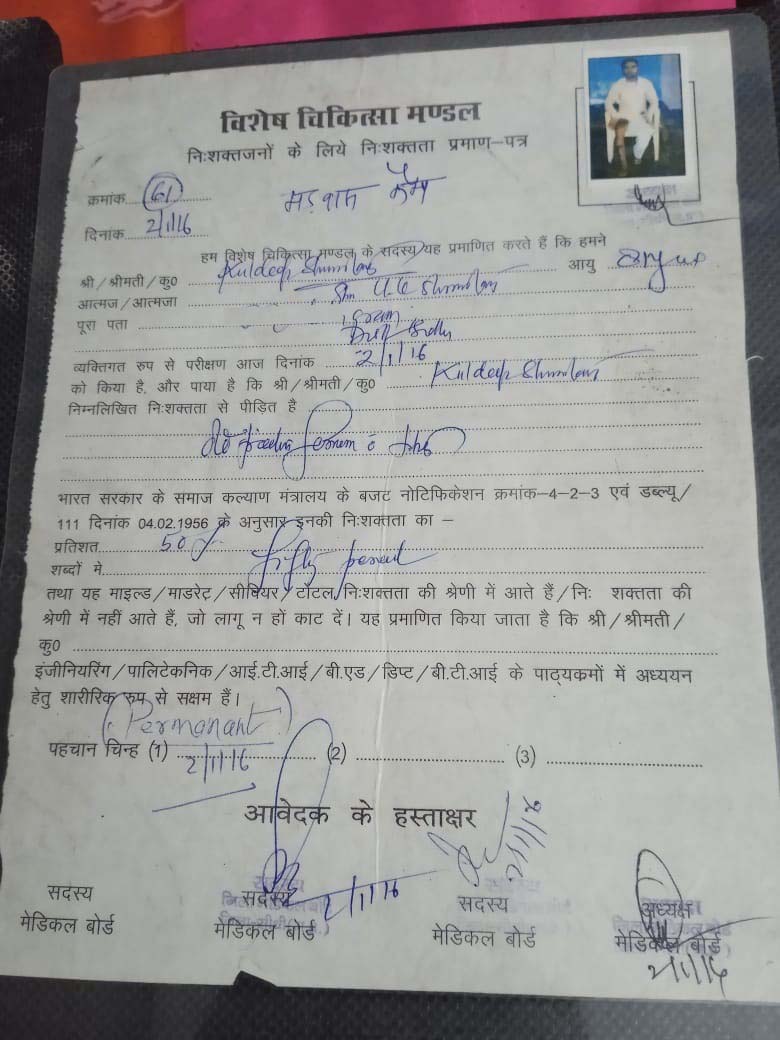 विशेष चिकित्सा मण्डल
निःशक्तजनों के लिये निःशक्तता प्रमाण-पत्र
क्रमांक 61
दिनांक 2/1/16
हम विशेष चिकित्सा मण्डल के सदस्य यह प्रमाणित करते हैं कि हमने
श्री/श्रीमती/कु0 Kuldeep आयु
आत्मज/आत्मजा
पूरा पता
व्यक्तिगत रुप से परीक्षण आज दिनांक 2/1/16
को किया है, और पाया है कि श्री/श्रीमती/कु0 Kuldeep
निम्नलिखित निःशक्तता से पीड़ित है
भारत सरकार के समाज कल्याण मंत्रालय के बजट नोटिफिकेशन क्रमांक-4-2-3 एवं डब्ल्यू/
111 दिनांक 04.02.1956 के अनुसार इनकी निःशक्तता का –
प्रतिशत 50%
शब्दों मे fifty percent
तथा यह माइल्ड/माडरेट/सीवियर/टोटल निःशक्तता की श्रेणी में आते हैं/निः शक्तता की
श्रेणी में नहीं आते हैं, जो लागू न हों काट दें। यह प्रमाणित किया जाता है कि श्री/श्रीमती/
कु0
इंजीनियरिंग/पालिटेकनिक/आई.टी.आई/बी.एड/डिप्ट/बी.टी.आई के पाठ्यकमों में अध्ययन
हेतु शारीरिक रुप से सक्षम हैं।
(Permanant)
पहचान चिन्ह (1) 2/1/16 (2) (3)
आवेदक के हस्ताक्षर
2/1/16
2/1/16
सदस्य सदस्य सदस्य अध्यक्ष
मेडिकल बोर्ड मेडिकल बोर्ड मेडिकल बोर्ड मेडिकल बोर्ड
2/1/16